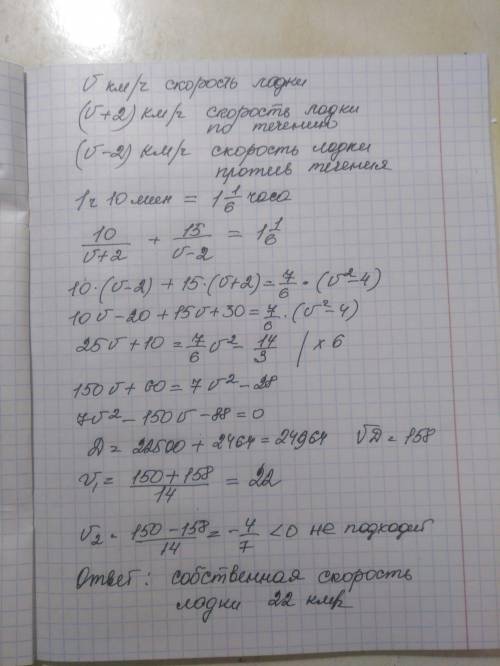 v км/ч скорость лодки
(v+2) км/ч скорость лодки
по течению
(v-2) км/ч скорость лодки
против течения
1ч 10 мин = 1 1/6 часа
10/(v+2) + 15/(v-2) = 1 1/6
10·(v-2) + 15·(v+2) = 7/6 · (v²-4)
10v-20+15v+30 = 7/6 · (v²-4)
25v+10 = 7/6 v² - 14/3 | x 6
150v+60 = 7v²-28
7v²-150v-88=0
D = 22500 + 2464 = 24964 √D = 158
v₁ = (150+158)/14 = 22
v₂ = (150-158)/14 = -4/7 <0 не подходит
Ответ: собственная скорость
лодки 22 км/ч